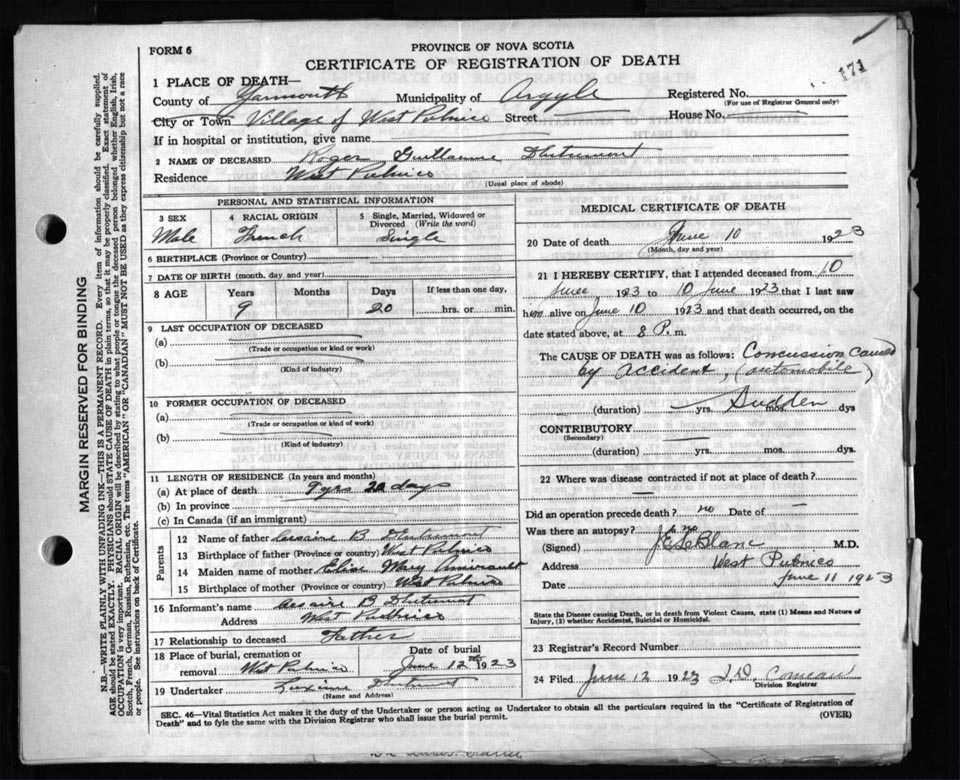 171
FORM 6
PROVINCE OF NOVA SCOTIA
CERTIFICATE OF REGISTRATION OF DEATH
1 PLACE OF DEATH—
County of Yarmouth Municipality of Argyle Registered No.
(For use of Registrar General only)
City or Town Village of West Pubnico Street House No.
If in hospital or institution, give name
2 NAME OF DECEASED Roger Guillaume
Residence West Pubnico
(Usual place of abode)
PERSONAL AND STATISTICAL INFORMATION
3 SEX 4 RACIAL ORIGIN 5 Single, Married, Widowed or Divorced (Write the word)
Male French Single
6 BIRTHPLACE (Province or Country)
7 DATE OF BIRTH (month, day and year)
8 AGE Years Months Days If less than one day,
9 20 hrs. or min.
9 LAST OCCUPATION OF DECEASED
(a)
(Trade or occupation or kind or work)
(b)
(Kind of industry)
10 FORMER OCCUPATION OF DECEASED
(a)
(Trade or occupation or kind of work)
(b)
(Kind of industry)
11 LENGTH OF RESIDENCE (In years and months)
(a) At place of death 9 yrs 20 days
(b) In province
(c) In Canada (if an immigrant)
Parents
12 Name of father B
13 Birthplace of father (Province or country) West Pubnico
14 Maiden name of mother Elise Mary Amirault
15 Birthplace of mother (Province or country) West Pubnico
16 Informant's name B
Address West Pubnico
17 Relationship to deceased Father
18 Place of burial, cremation or removal West Pubnico Date of burial June 12 1923
19 Undertaker
(Name and Address)
MEDICAL CERTIFICATE OF DEATH
20 Date of death June 10 1923
(Month, day and year)
21 I HEREBY CERTIFY, that I attended deceased from 10
June 1923 to 10 June 1923 that I last saw
him alive on June 10 1923 and that death occurred, on the
date stated above, at 8 P. m.
The CAUSE OF DEATH was as follows: Concussion caused
by accident, (automobile)
(duration) yrs. Sudden mos. dys
CONTRIBUTORY
(Secondary)
(duration) yrs. mos. dys.
22 Where was disease contracted if not at place of death?
Did an operation precede death? no Date of —
Was there an autopsy? no
(Signed) J.E. LeBlanc M.D.
Address West Pubnico
Date June 11 1923
State the Disease causing Death, or in death from Violent Causes, state (1) Means and Nature of
Injury, (2) whether Accidental, Suicidal or Homicidal.
23 Registrar's Record Number
24 Filed June 12 1923 Comeau
Division Registrar
SEC. 46—Vital Statistics Act makes it the duty of the Undertaker or person acting as Undertaker to obtain all the particulars required in the "Certificate of Registration of
Death" and to fyle the same with the Division Registrar who shall issue the burial permit.
(OVER)
MARGIN RESERVED FOR BINDING
N.B.—WRITE PLAINLY WITH UNFADING INK—THIS IS A PERMANENT RECORD. Every item of information should be carefully supplied.
AGE should be stated EXACTLY. PHYSICIANS should STATE CAUSE OF DEATH in plain terms, so that it may be properly classified. Exact statement of
OCCUPATION is very important. RACIAL ORIGIN will be described by stating to what people or tongue the deceased person belonged whether English, Irish,
Scotch, French, German, Russian, Ruthenian, etc. The terms "AMERICAN" OR "CANADIAN" MUST NOT BE USED as they express citizenship but not a race
or people. See instructions on back of Certificate.